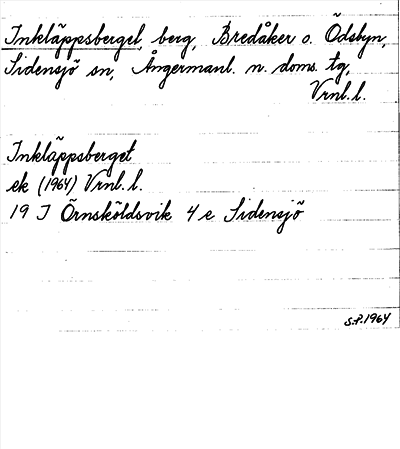 Inkläppsberget, berg, Bredåker o. Ödsbyn,
Sidensjö sn, Ångermanl. n. doms. tg,
Vrnl.l.
Inkläppsberget
ek (1964) Vrnl.l.
19 I Örnsköldsvik 4 e Sidensjö
S.P.1964